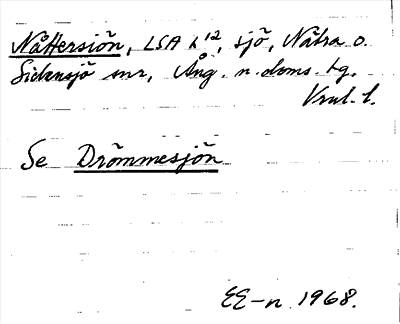 Nättersjön, LSA h¹², sjö, Nätra o.
Sidensjö snr, Ång. n. doms. tg.
Vnl. l.
Se Drömmesjön
EE-n 1968.